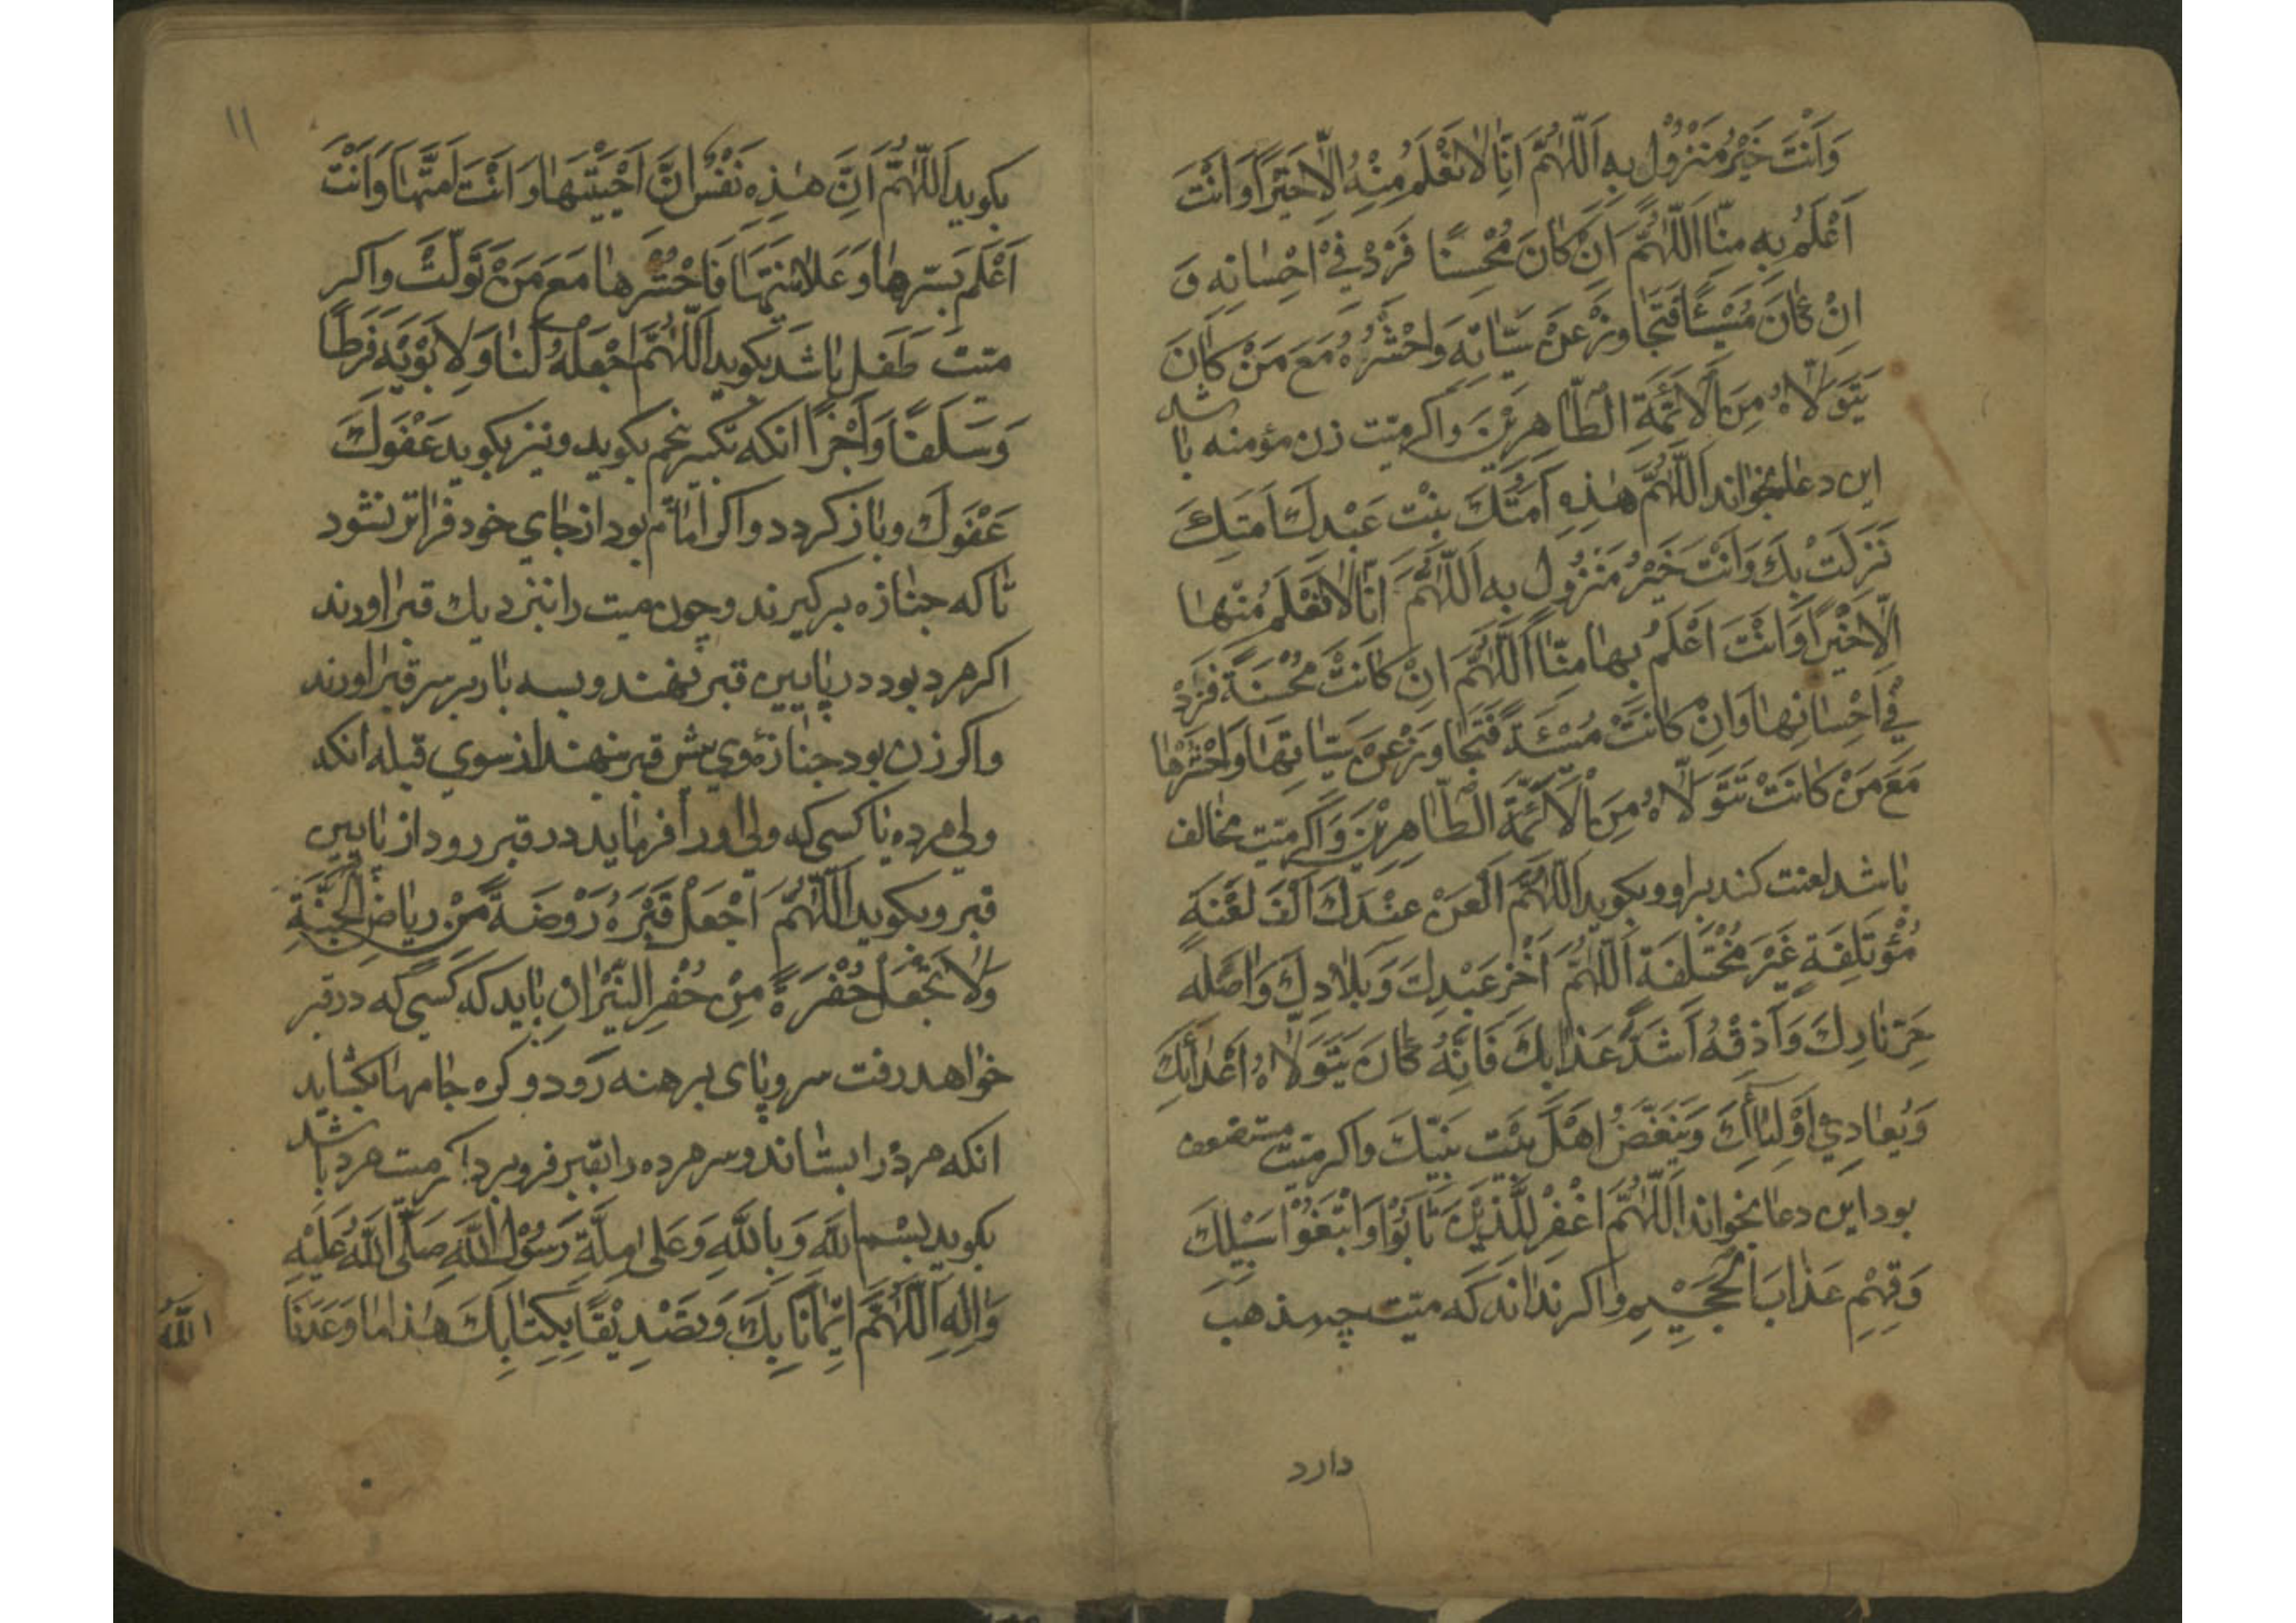 وَاَنْتَ خَيْرُ مَنْزُولٍ بِهِ اَللّٰهُمَّ اِنّٰا لٰا نَعْلَمُ مِنْهُ اِلّٰا خَيْرًا وَاَنْتَ
اَعْلَمُ بِهِ مِنّٰا اَللّٰهُمَّ اِنْ كٰانَ مُحْسِنًا فَزِدْ فِيْ اِحْسٰانِهِ وَ
اِنْ كٰانَ مُسْيئًا فَتَجٰاوَزْ عَنْ سَيّاتِهِ وَاحْشُرْهُ مَعَ مَنْ كٰانَ
يَتَوَلّٰاهُ مِنَ الْاَئِمَّةِ الطّٰاهِرِيْنَ وَاكر ميّت زن مؤمنه باشد
اين دعا بخواند اَللّٰهُمَّ هٰذِهِ اَمَتُكَ بِنْت عَبْدِكَ اَمَتِكَ
نَزَلَتْ بِكَ وَاَنْتَ خَيْرُ مَنْزُولٍ بِهِ اَللّٰهُمَّ اِنّٰا لٰا نَعْلَمُ مِنْهٰا
اِلّٰا خَيْرًا وَاَنْتَ اَعْلَمُ بِهٰا مِنّٰا اَللّٰهُمَّ اِنْ كٰانَتْ مُحْسِنَةً فَزِدْ
فِيْ اِحْسٰانِهٰا وَاِنْ كٰانَتْ مُسْيئَةً فَتَجٰاوَزْ عَنْ سَيّاتِهٰا وَاحْشُرْهٰا
مَعَ مَنْ كٰانَتْ تَتَوَلّٰاهُ مِنَ الْاَئِمَّةِ الطّٰاهِرِيْنَ وَاكر ميّت مخالف
باشد لعنت كند براو وبكويد اَللّٰهُمَّ الْعَنْ عَبْدَكَ اَلْفَ لَعْنَةٍ
مُؤْتَلِفَةٍ غَيْرَ مُخْتَلِفَةٍ اَللّٰهُمَّ اَخْزِ عَبْدِكَ وَبِلٰادِكَ وَاَصْلِهِ
حَرَّ نٰارِكَ وَاَذِقْهُ اَشَدَّ عَذٰابِكَ فَاِنَّهُ كٰانَ يَتَوَلّٰاهُ اَعْدٰائِكَ
وَيُعٰادِيْ اَوْلِيٰائِكَ وَيَبْغَضُ اَهْلَ بَيْتِ نَبِيِّكَ واكر ميّت مستضعف
بود اين دعا بخواند اَللّٰهُمَّ اغْفِرْ لِلَّذِيْنَ تٰابُوْا وَاتَّبَعُوْا سَبيْلَكَ
وَقِهِمْ عَذٰابَ الْجَحيْمِ واكر نداند كه ميّت چه مذهب
دارد
١١
بكويد اَللّٰهُمَّ اِنَّ هٰذِهِ نَفْسٌ اَنْتَ اَحْيَيْتَهٰا وَاَنْتَ اَمَتَّهٰا وَاَنْتَ
اَعْلَم بِسِّرِهٰا وَعَلٰانِيَتِهٰا فَاحْشُرْهٰا مَعَ مَنْ تَوَلَّتْ واكر
ميّت طفل باشد بكويد اَللّٰهُمَّ اجْعَلْهُ لَنٰا وَلِاَبَوَيْهِ فَرَطًا
وَسَلَفًا وَاَجْرًا انكه تكبير پنجم بكويد ونيز بكويد عَفْوَكَ
عَفْوَكَ وباز كردد واكر امام بود از جاي خود فراتر نشود
تا كه جنازه بركيرند وچون ميت را بنزديك قبر اورند
اكر مرد بود در پايين قبر بنهند وبسه بار بر سر قبر اورند
واكر زن بود جنازهٔ وي پيش قبر بنهند از سوي قبله انكه
ولي مرده يا كسي كه ولي او را فرمايد در قبر رود از پايين
قبر وبكويد اَللّٰهُمَّ اجْعَلْ قَبْرَهُ رَوْضَةً مِنْ رِيٰاضِ الْجَنَّةِ
وَلٰا تَجْعَل حُفْرَةً مِنْ حُفَرِ النّيْرٰانِ بايد كه كسي كه در قبر
خواهد رفت سر وپاى برهنه رود وكره جامها بكشايد
انكه مرد را بستاند وسر مرده را بقبر فرو برد اكر ميت مرد باشد
بكويد بِسْمِ اللّٰهِ وَبِاللّٰهِ وَعَلىٰ مِلَّةِ رَسُوْلِ اللّٰهِ صَلَّى اللّٰهُ عَلَيْهِ
وَاٰلِهِ اَللّٰهُمَّ اِيْمٰانًا بِكَ وَتَصْدِيْقًا بِكِتٰابِكَ هٰذٰا مٰا وَعَدَنَا
اللّٰهُ